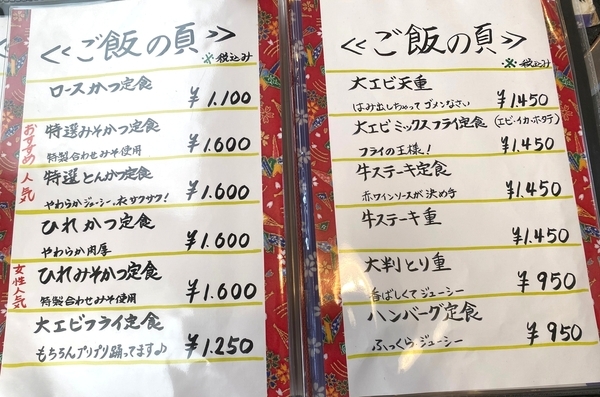 ≪ご飯の頁≫
※税込み
ロースかつ定食
¥1.100
おすすめ
特選みそかつ定食
特製合わせみそ使用
¥1.600
人気
特選とんかつ定食
やわらかジューシー、衣サクサク!
¥1.600
ひれかつ定食
やわらか肉厚
¥1.600
女性人気
ひれみそかつ定食
特製合わせみそ使用
¥1.600
大エビフライ定食
もちろんプリプリ踊ってます♪
¥1.250
≪ご飯の頁≫
※税込み
大エビ天重
はみ出しちゃってゴメンなさい
¥1.450
大エビミックスフライ定食(エビ・イカ・ホタテ)
フライの王様!
¥1.450
牛ステーキ定食
赤ワインソースが決め手
¥1.450
牛ステーキ重
¥1.450
大判とり重
香ばしくてジューシー
¥950
ハンバーグ定食
ふっくらジューシー
¥950